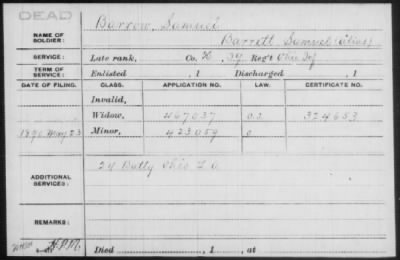 DEAD
NAME OF SOLDIER: Barrow, Samuel
Barrett Samuel (alias)
SERVICE: Late rank, Co. K, 39 Reg't Ohio Inf
TERM OF SERVICE: Enlisted , 1 Discharged , 1
DATE OF FILING. CLASS. APPLICATION NO. LAW. CERTIFICATE NO.
Invalid,
Widow, 467037 O.L. 324653
1890 May 23 Minor, 423059 O
ADDITIONAL SERVICES: 24 Batty Ohio L A
REMARKS:
Died , 1 , at